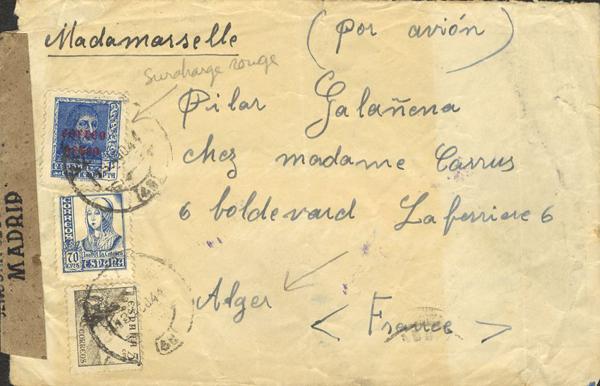 Madamarselle
(Por avión)
Surcharge rouge
Pilar Galañena
chez madame Carrus
6 boldevard Laferriere 6
Alger
< France >
CORREO
AEREO
CORREOS
70 CTS
ESPAÑA
ESPAÑA
5
CORREOS
MADRID